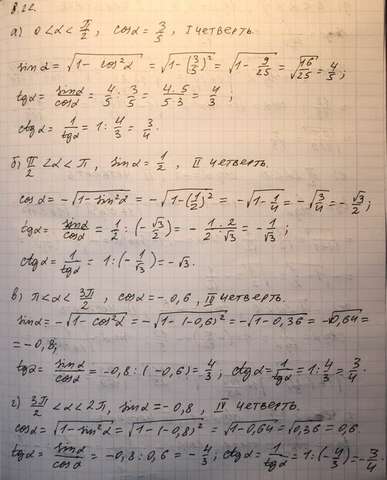 8.22.
а) 0 < α < π/2, cosα = 3/5, I четверть.
sinα = √(1 - cos²α) = √(1 - (3/5)²) = √(1 - 9/25) = √(16/25) = 4/5;
tgα = sinα/cosα = 4/5 : 3/5 = 4·5/5·3 = 4/3;
ctgα = 1/tgα = 1 : 4/3 = 3/4.
б) π/2 < α < π, sinα = 1/2, II четверть.
cosα = -√(1 - sin²α) = -√(1 - (1/2)²) = -√(1 - 1/4) = -√(3/4) = -√3/2;
tgα = sinα/cosα = 1/2 : (-√3/2) = - 1·2/2·√3 = - 1/√3;
ctgα = 1/tgα = 1 : (-1/√3) = -√3.
в) π < α < 3π/2, cosα = -0,6, III четверть.
sinα = -√(1 - cos²α) = -√(1 - (-0,6)²) = -√(1 - 0,36) = -√0,64 =
= -0,8;
tgα = sinα/cosα = -0,8 : (-0,6) = 4/3; ctgα = 1/tgα = 1 : 4/3 = 3/4.
г) 3π/2 < α < 2π, sinα = -0,8, IV четверть.
cosα = √(1 - sin²α) = √(1 - (-0,8)²) = √(1 - 0,64) = √0,36 = 0,6.
tgα = sinα/cosα = -0,8 : 0,6 = - 4/3; ctgα = 1/tgα = 1 : (-4/3) = - 3/4.